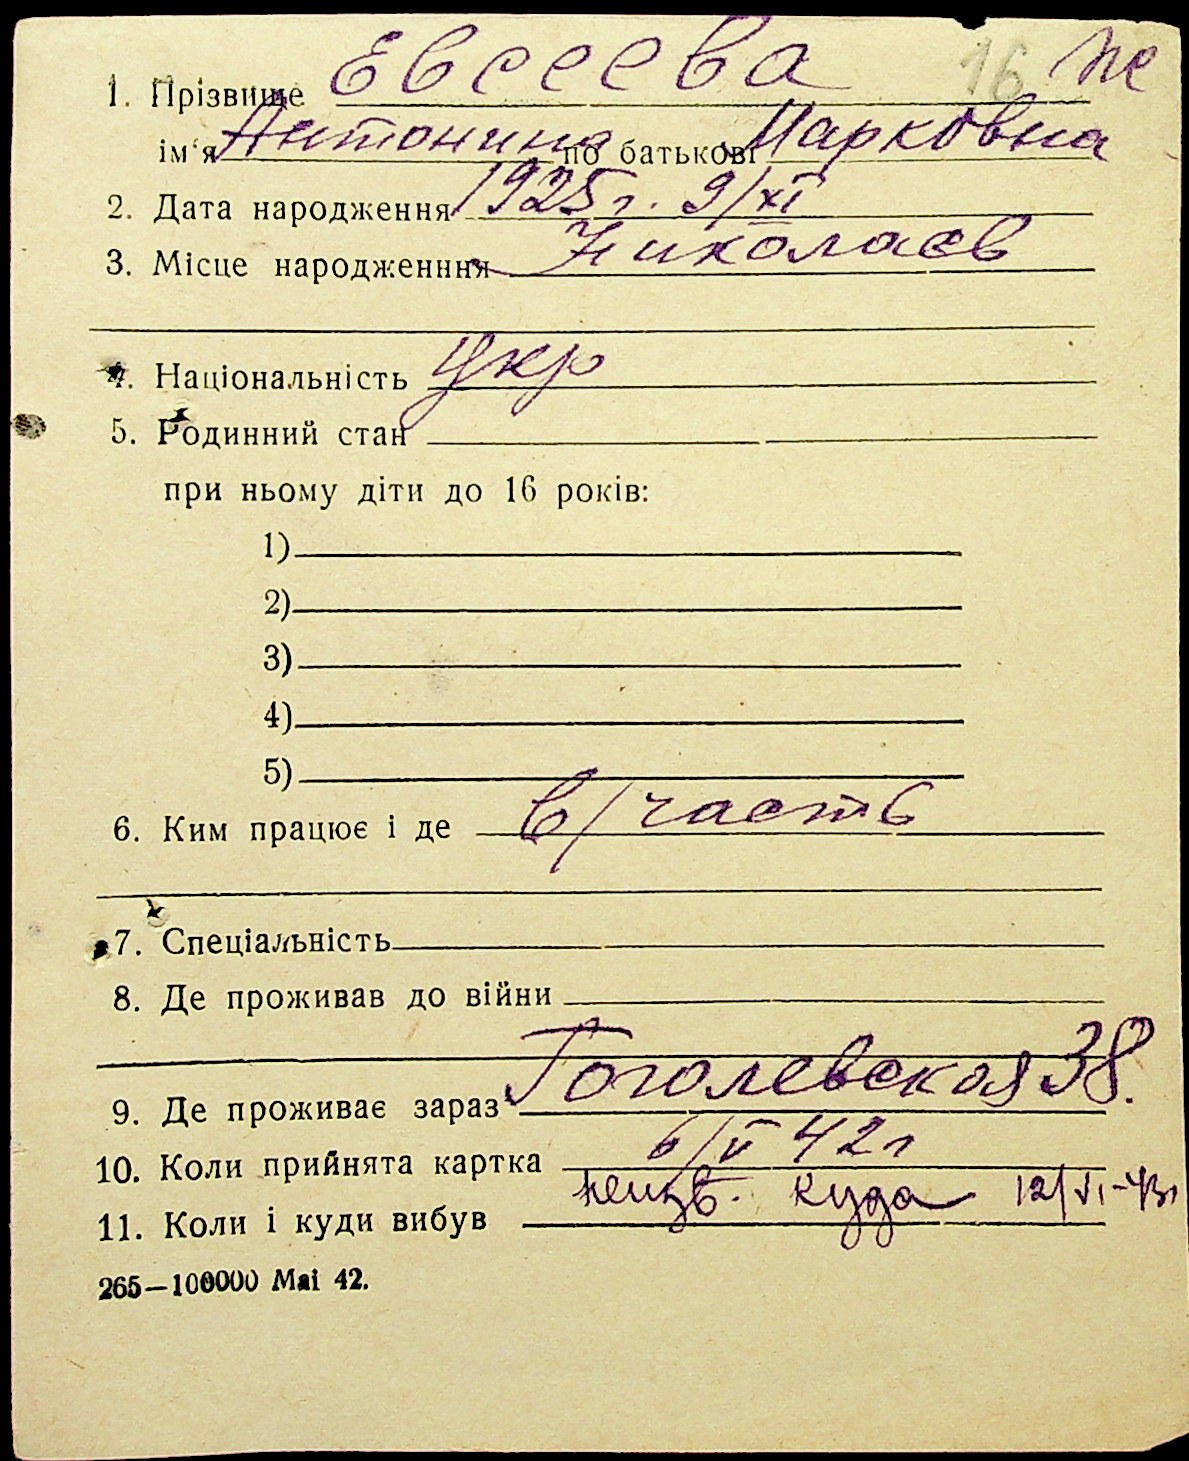 Евсеева 16
1. Прізвище
ім‘я Антонина по батькові Марковна
2. Дата народження 1925 г. 9/XI
3. Місце народженння Николаев
4. Національність Укр
5. Родинний стан
при ньому діти до 16 років:
1)
2)
3)
4)
5)
6. Ким працює і де в/часть
7. Спеціальність
8. Де проживав до війни
9. Де проживає зараз Гоголевская 38.
10. Коли прийнята картка 6/V 42 г
11. Коли і куди вибув неизв. куда 12/VI-43г
265—100000 Mai 42.